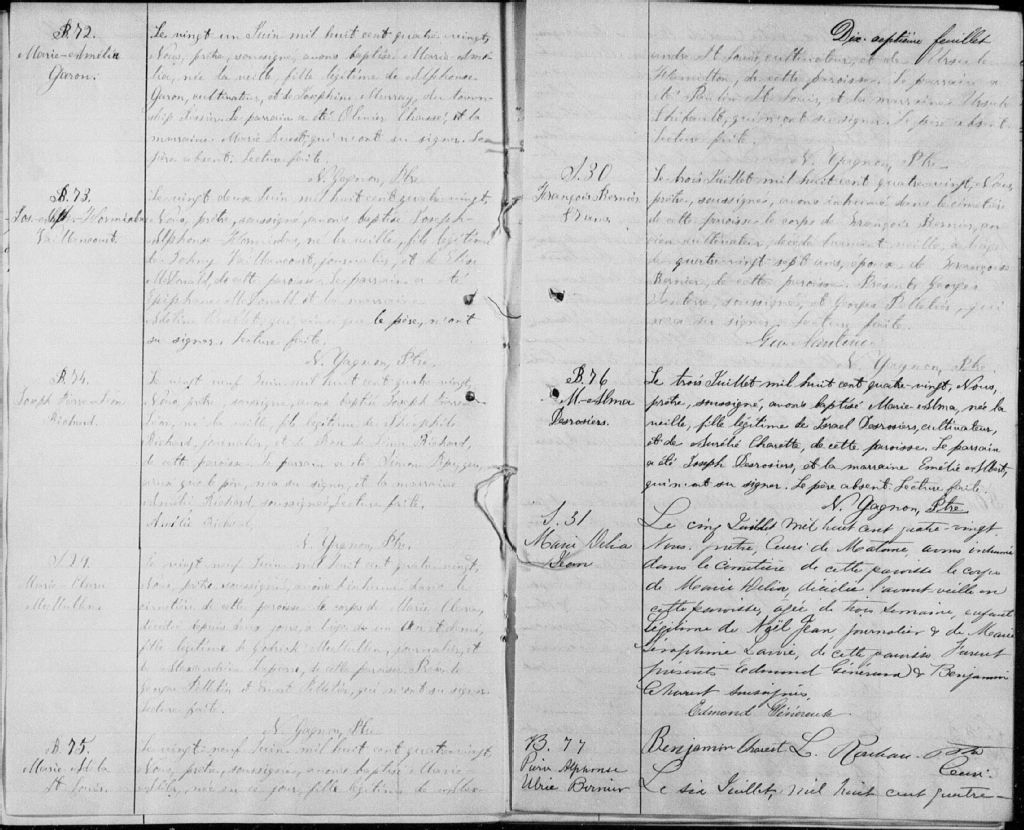 B. 72.
Marie-Amélia
Garon.
Le vingt un Juin mil huit cent quatre-vingt,
Nous, prêtre, soussigné, avons baptisé Marie-Amé-
lia, née la veille, fille légitime de Alphonse
Garon, cultivateur, et de Joséphine Murray, du town-
ship Tessier. Le parrain a été Olivier et la
marraine Marie qui n'ont su signer. Le
père absent. Lecture faite.
N. Gagnon, Ptre
B. 73.
Vaillancourt.
Le vingt deux Juin mil huit cent quatre-vingt,
Nous, prêtre, soussigné, avons baptisé Joseph-
Alphonse né la veille, fils légitime
de Johny Vaillancourt, journalier, et de Elise
McDonald, de cette paroisse. Le parrain a été
Epiphane McDonald et la marraine
qui, ainsi que le père, n'ont
su signer. Lecture faite.
N. Gagnon, Ptre.
B. 74.
Joseph
Richard.
Le vingt neuf Juin mil huit cent quatre vingt,
Nous, prêtre, soussigné, avons baptisé Joseph
né la veille, fils légitime de Théophile
Richard, journalier, et de Rose de Lima Richard,
de cette paroisse. Le parrain a été Simon
qui ainsi que le père, n'a su signer, et la marraine
Amélie Richard, soussignée. Lecture faite.
Amélie Richard,
N. Gagnon, Ptre.
S. 29.
Marie Clara
McMullen.
Le vingt neuf Juin mil huit cent quatre-vingt,
Nous, prêtre, soussigné, avons inhumé dans le
cimetière de cette paroisse le corps de Marie Clara,
décédée depuis deux jours, à l'âge de un an et demi,
fille légitime de McMullen, journalier, et
de de cette paroisse. Présents
George Pelletier et Pelletier, qui n'ont su signer.
Lecture faite.
N. Gagnon, Ptre
B. 75.
Marie Alda
St Louis.
Le vingt-neuf Juin mil huit cent quatre vingt
Nous, prêtre, soussigné, avons baptisé Marie-
Alda, née en ce jour, fille légitime de
Dix-septième feuillet
André St Louis, cultivateur, et de Ursule
Hamilton, de cette paroisse. Le parrain a
été Paulin St Louis, et la marraine Ursule
Thibault, qui n'ont su signer. Le père absent.
Lecture faite.
N. Gagnon, Ptre
S. 30
François Bernier
87 ans.
Le trois Juillet mil huit cent quatre-vingt, Nous,
prêtre, soussigné, avons inhumé dans le cimetière
de cette paroisse le corps de François Bernier, an-
cien cultivateur, décédé l'avant veille, à l'âge
de quatre-vingt sept ans, époux de Françoise
Bernier, de cette paroisse. Présents Georges
soussigné, et Georges Pelletier, qui
n'a su signer. Lecture faite.
Geo
N. Gagnon, Ptre.
B. 76
M-Alma
Desrosiers.
Le trois Juillet mil huit cent quatre-vingt, Nous,
prêtre, soussigné, avons baptisé Marie-Alma, née la
veille, fille légitime de Israel Desrosiers, cultivateur,
et de Aurélie Charette, de cette paroisse. Le parrain
a été Joseph Desrosiers, et la marraine Emélie Imbert,
qui n'ont su signer. Le père absent. Lecture faite.
N. Gagnon, Ptre
S. 31
Marie Delia
Jean
Le cinq Juillet mil huit cent quatre-vingt
Nous, prêtre, Curé de Matane, avons inhumé
dans le Cimetière de cette paroisse le corps
de Marie Delia, décédée l'avant veille en
cette paroisse, agée de trois semaine, enfant
légitime de Noël Jean, journalier & de Marie
Séraphine Lavoie, de cette paroisse. Furent
présents Edmond Généreux & Benjamin
Charest soussignés,
Edmond Généreux.
Benjamin Charest L. Rouleau Ptre
Curé.
B. 77
Pierre Alphonse
Ulric Bernier
Le six Juillet, mil huit cent quatre-